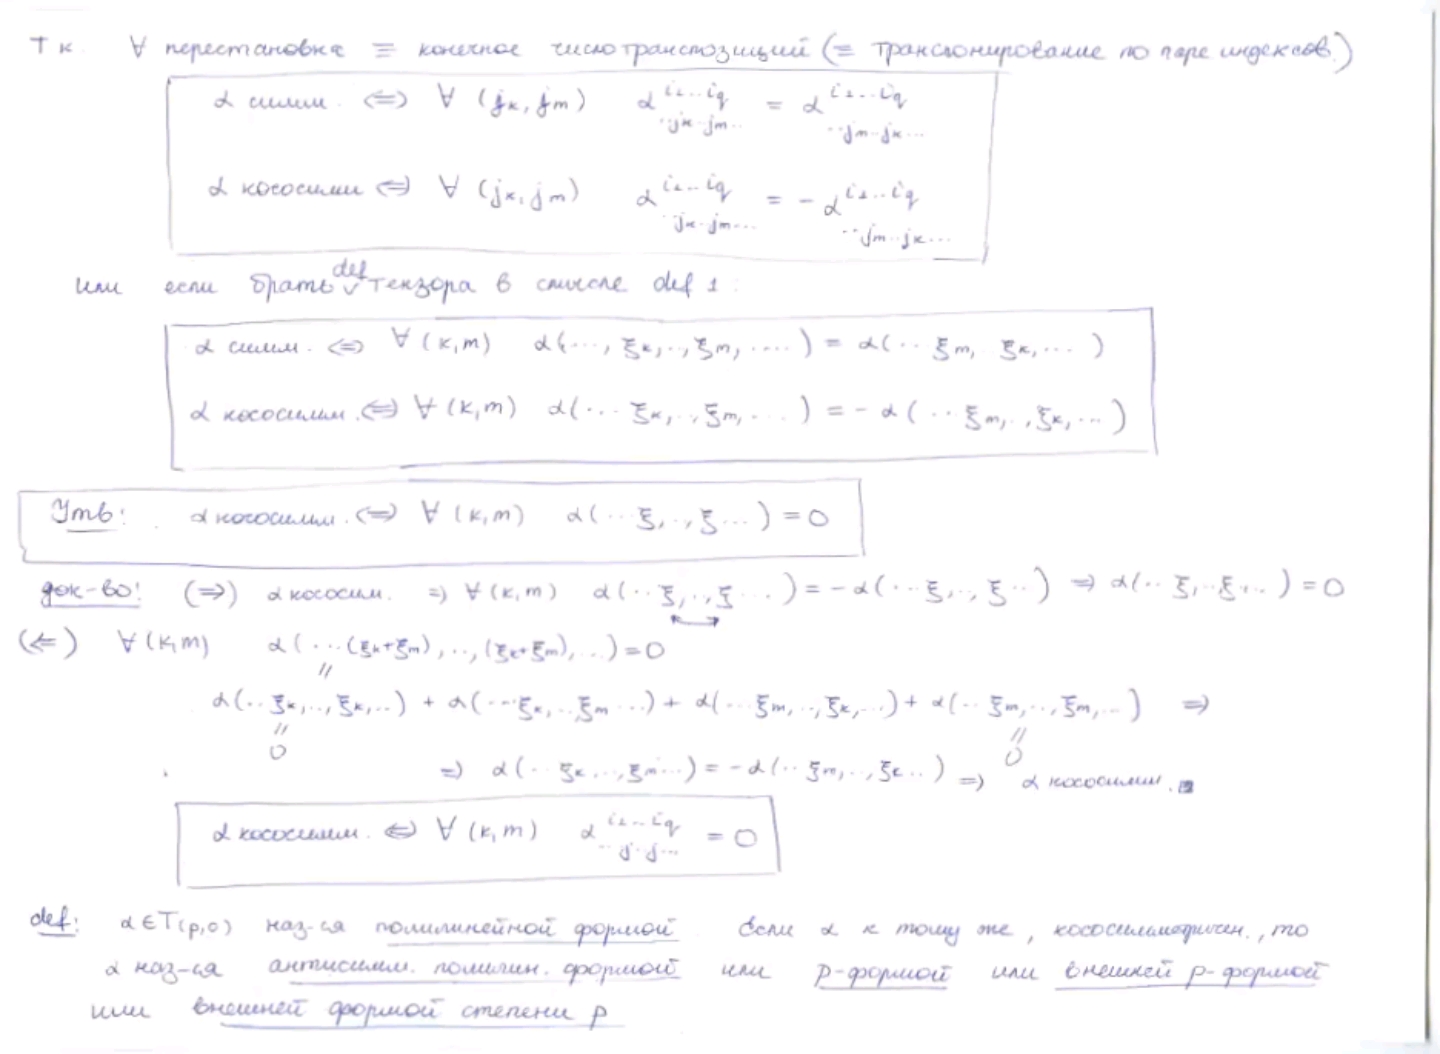 Т к. ∀ перестановка ≡ конечное число транспозиций (≡ транспонирование по паре индексов.)
α симм. ⇔ ∀ (jₖ, jₘ) α^{i₁...i_q}_{..jₖ..jₘ..} = α^{i₁...i_q}_{..jₘ..jₖ...}
α кососимм ⇔ ∀ (jₖ, jₘ) α^{i₁...i_q}_{..jₖ..jₘ...} = - α^{i₁...i_q}_{..jₘ..jₖ...}
Или если брать def тензора в смысле def 1:
α симм. ⇔ ∀ (k,m) α(..., ξₖ,..,ξₘ, ....) = α(.. ξₘ, ξₖ,... )
α кососимм. ⇔ ∀ (k,m) α(... ξₖ,..,ξₘ, ... ) = - α ( .. ξₘ,..,ξₖ, ... )
Утв: α кососимм. ⇔ ∀ (k,m) α(... ξ,..,ξ...) = 0
док-во: (⇒) α кососим. ⇒ ∀ (k,m) α(.. ξ,..,ξ... ) = - α(... ξ,.., ξ...) ⇒ α(.. ξ,..ξ... ) = 0
(⇐) ∀ (k,m) α( ... (ξₖ+ξₘ),..,(ξₖ+ξₘ),...) = 0
||
α(.. ξₖ,..,ξₖ,..) + α(... ξₖ,..,ξₘ ...) + α(... ξₘ,..,ξₖ,...) + α(.. ξₘ,..,ξₘ,...) ⇒
|| ||
0 0
⇒ α(.. ξₖ...,ξₘ...) = - α(.. ξₘ,..,ξₖ..) ⇒ α кососимм.
α кососимм. ⇔ ∀ (k,m) α^{i₁...i_q}_{..j..j...} = 0
def: α ∈ T(p,0) наз-ся полилинейной формой. Если α к тому же, кососимметричен., то
α наз-ся антисимм. полилин. формой или p-формой или внешней p-формой
или внешней формой степени p